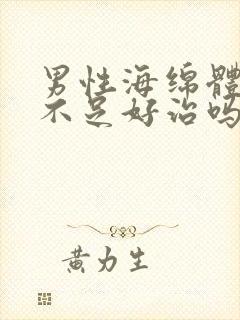 男性海绵體
不足好治吗
黄力生